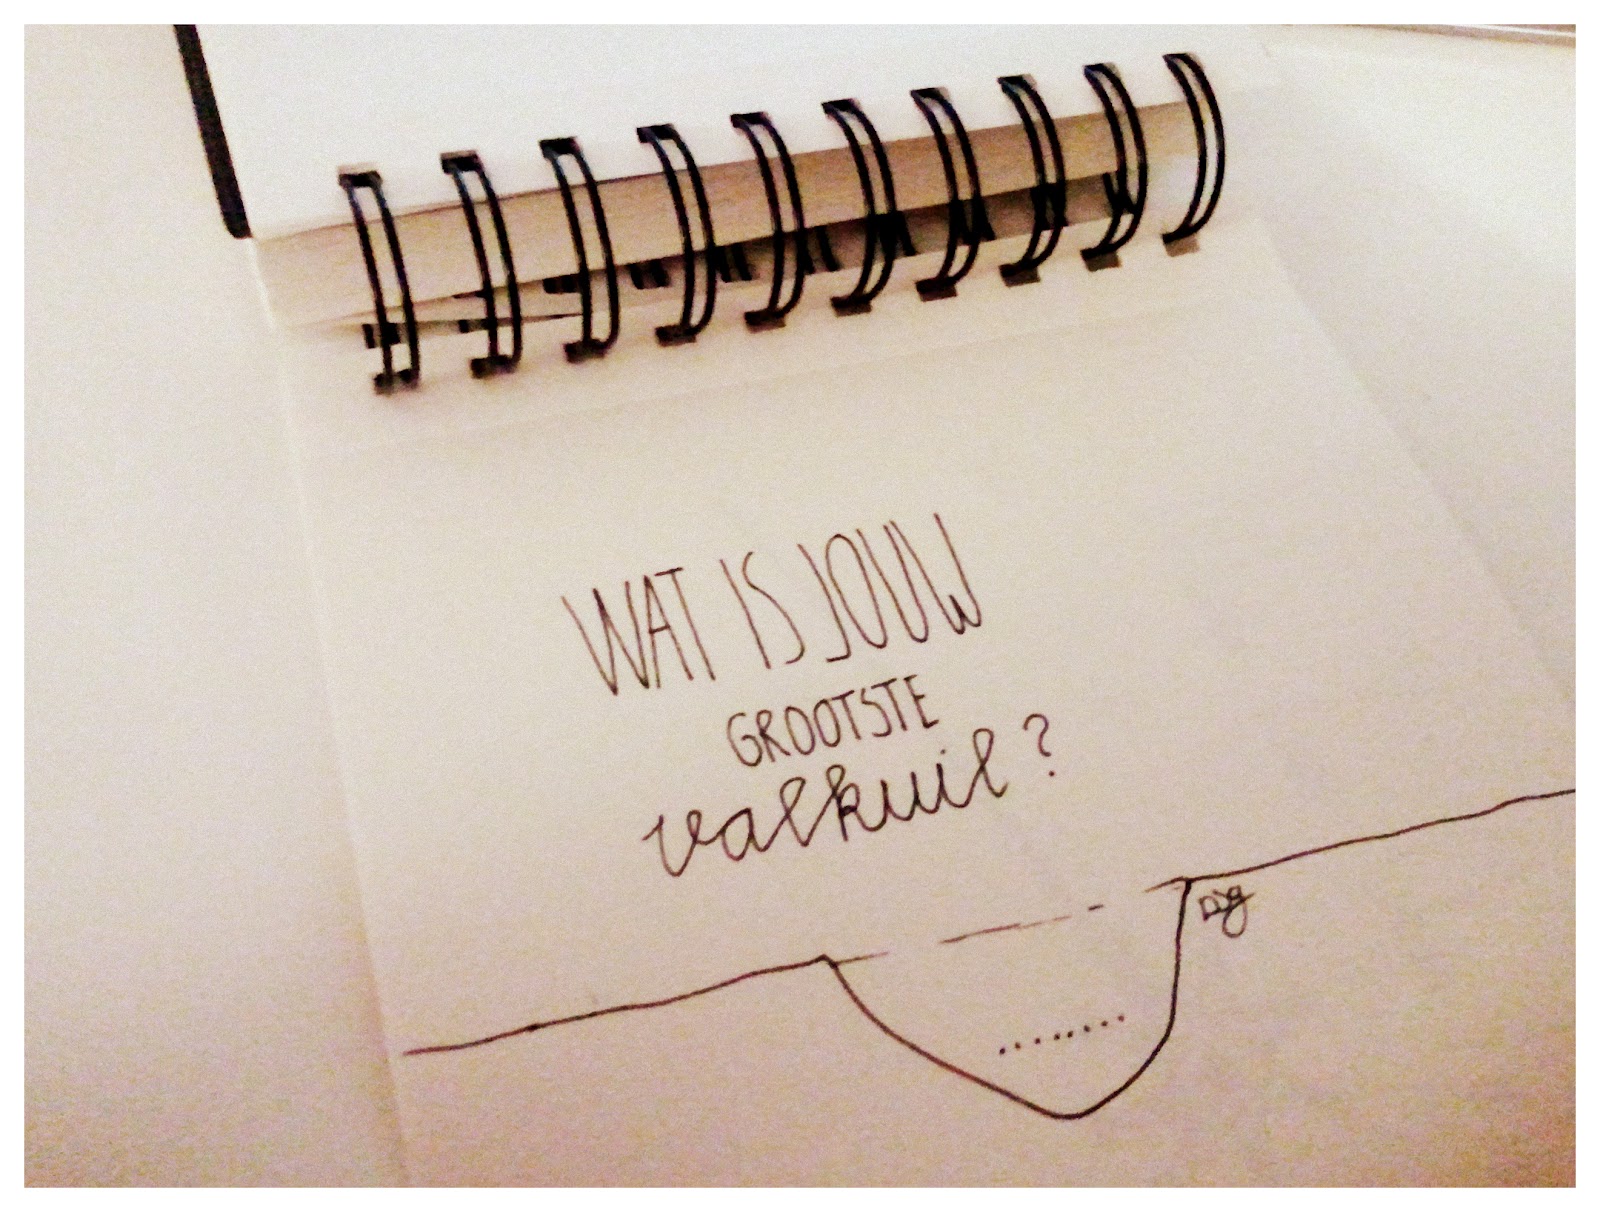 WAT IS JOUW
GROOTSTE
valkuil?
........